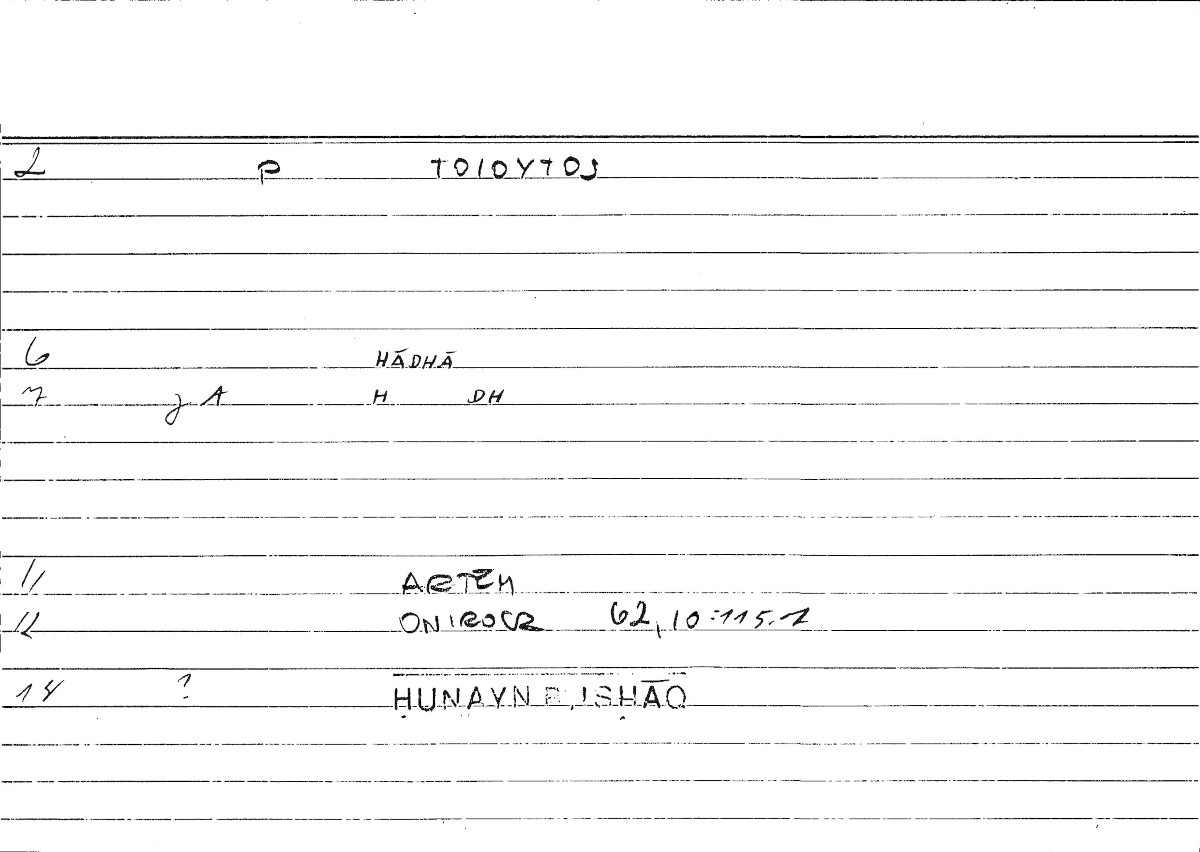 2 P TOIOYTOS
6 HĀDHĀ
7 j A H DH
11 ARTEM
12 ONIROCR 62,10:115.1
14 ? ḤUNAYN B. ISḤĀQ